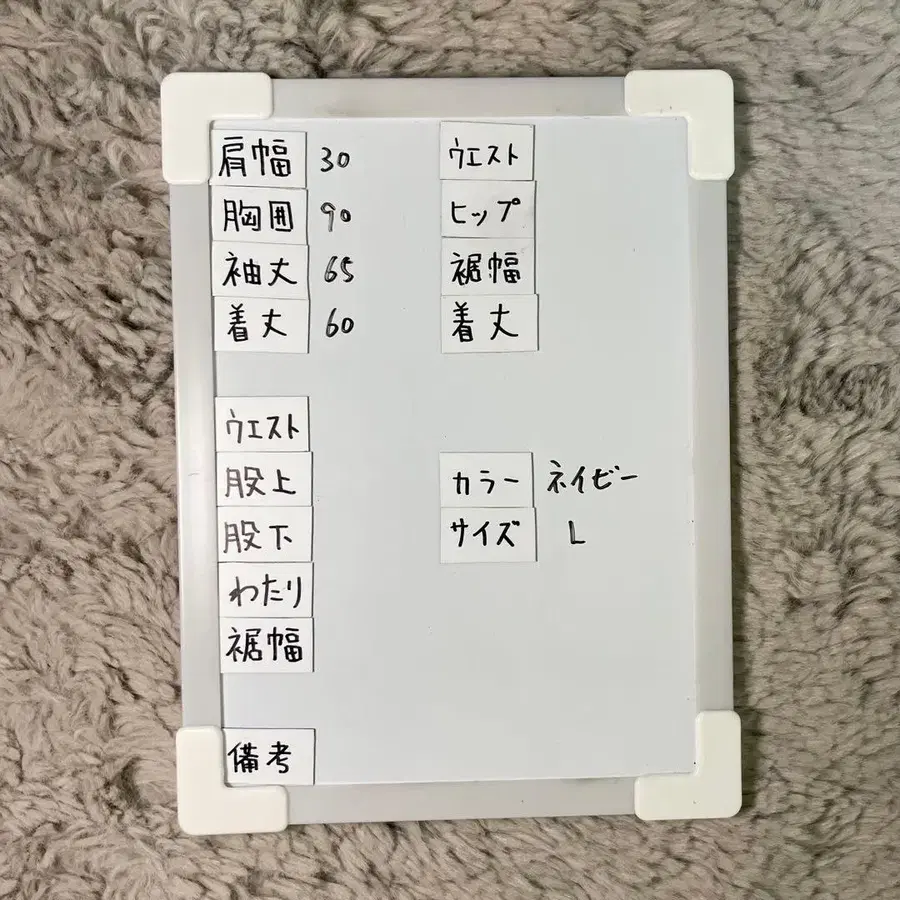 肩幅 30
胸囲 90
袖丈 65
着丈 60
ウエスト
股上
股下
わたり
裾幅
備考
ウエスト
ヒップ
裾幅
着丈
カラー ネイビー
サイズ L